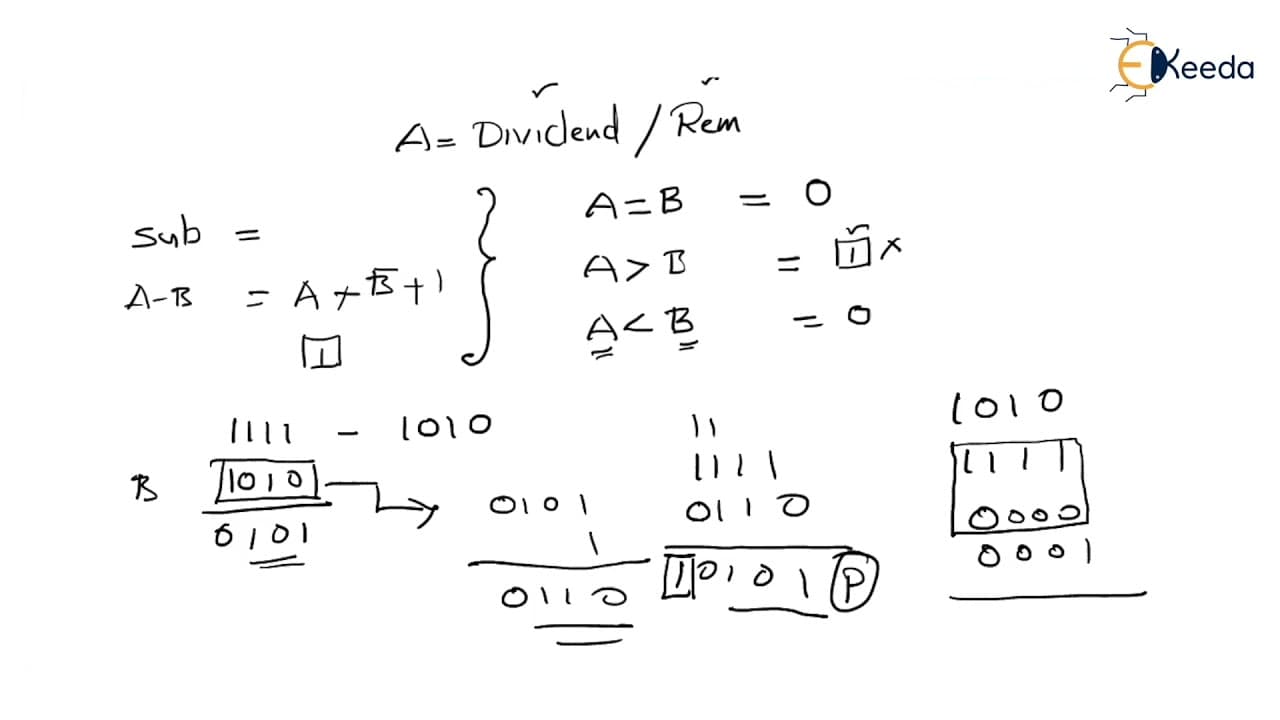 EKeeda
A = Dividend / Rem
sub =
A-B = A + B̅ + 1
1
A = B = 0
A > B = 1 ×
A < B = 0
1111 - 1010
B 1010
0101
0101
1
0110
11
1111
0110
10101 P
1010
1111
0000
0001